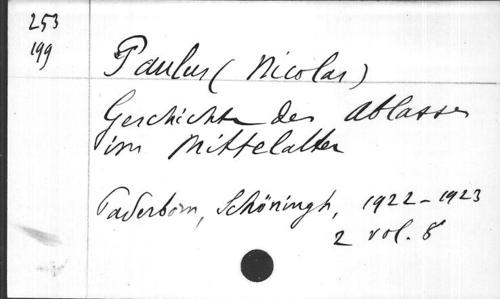 253
199
Paulus (Nicolas)
Geschichte des Ablasses
im Mittelalter
Paderborn, Schöningh, 1922-1923
2 vol. 8°